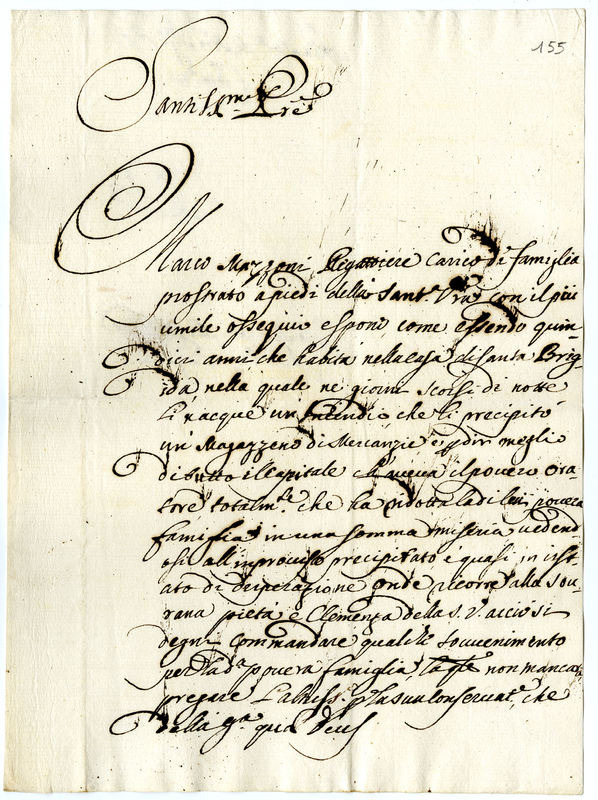 155
Santiss.mo Pre
Marco Mazzoni Regattiere carico di famiglia
prostrato a piedi della Sant.a Vra con il più
umile ossequio espone, come essendo quin-
dici anni che habita nella casa di Santa Brig-
ida nella quale ne giorni scorsi di notte
li nacque un Incendio che li precipitò
un Magazzeno di Mercanzie e p dir meglio
di tutto il Capitale ch'aveva il povero Ora-
tore totalm.te che ha ridotta la di lui povera
famiglia in una somma miseria vedend
osi all'improviso precipitato e quasi in ist-
ato di disperazione onde ricorre alla sou-
rana pietà e Clemenza della S. V. acciò si
degni commandare qualche souvenimento
per la d.a povera famiglia, la qle non mancarà
pregare l'Altiss.o p la sua conservat.e, che
della g.a qua Deus